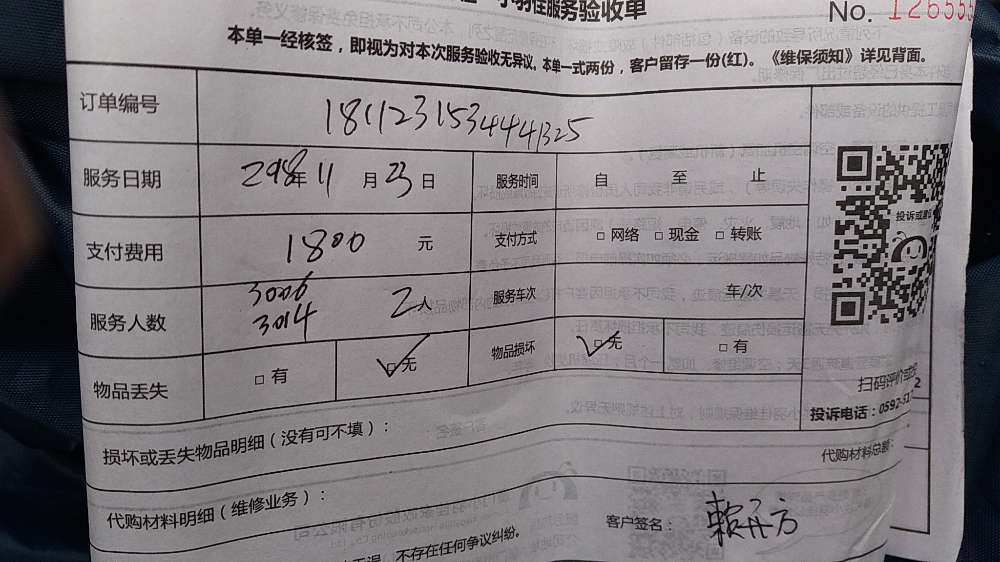 小羽佳服务验收单
No. 126555
本单一经核签，即视为对本次服务验收无异议。本单一式两份，客户留存一份(红)。《维保须知》详见背面。
订单编号 181123153444325
服务日期 2018年11月23日 服务时间 自 至 止
支付费用 1800 元 支付方式 □ 网络 □ 现金 □ 转账
投诉或建议
服务人数 3006 3014 2人 服务车次 车/次
物品丢失 □ 有 □ 无 物品损坏 □ 无 □ 有
扫码评价或投诉
投诉电话：0592-517 2
损坏或丢失物品明细（没有可不填）：
代购材料总额：
代购材料明细（维修业务）：
客户签名：赖丹方
不存在任何争议纠纷。